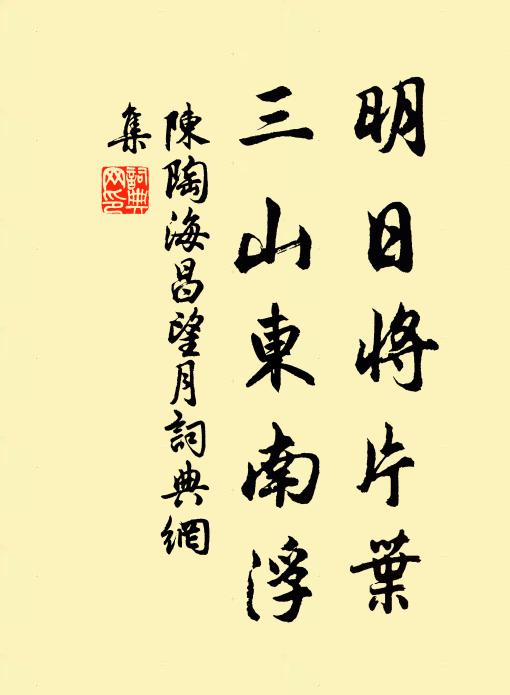 明日將片葉
三山東南浮
陳陶海昌望月詞典網
集
詞典網印